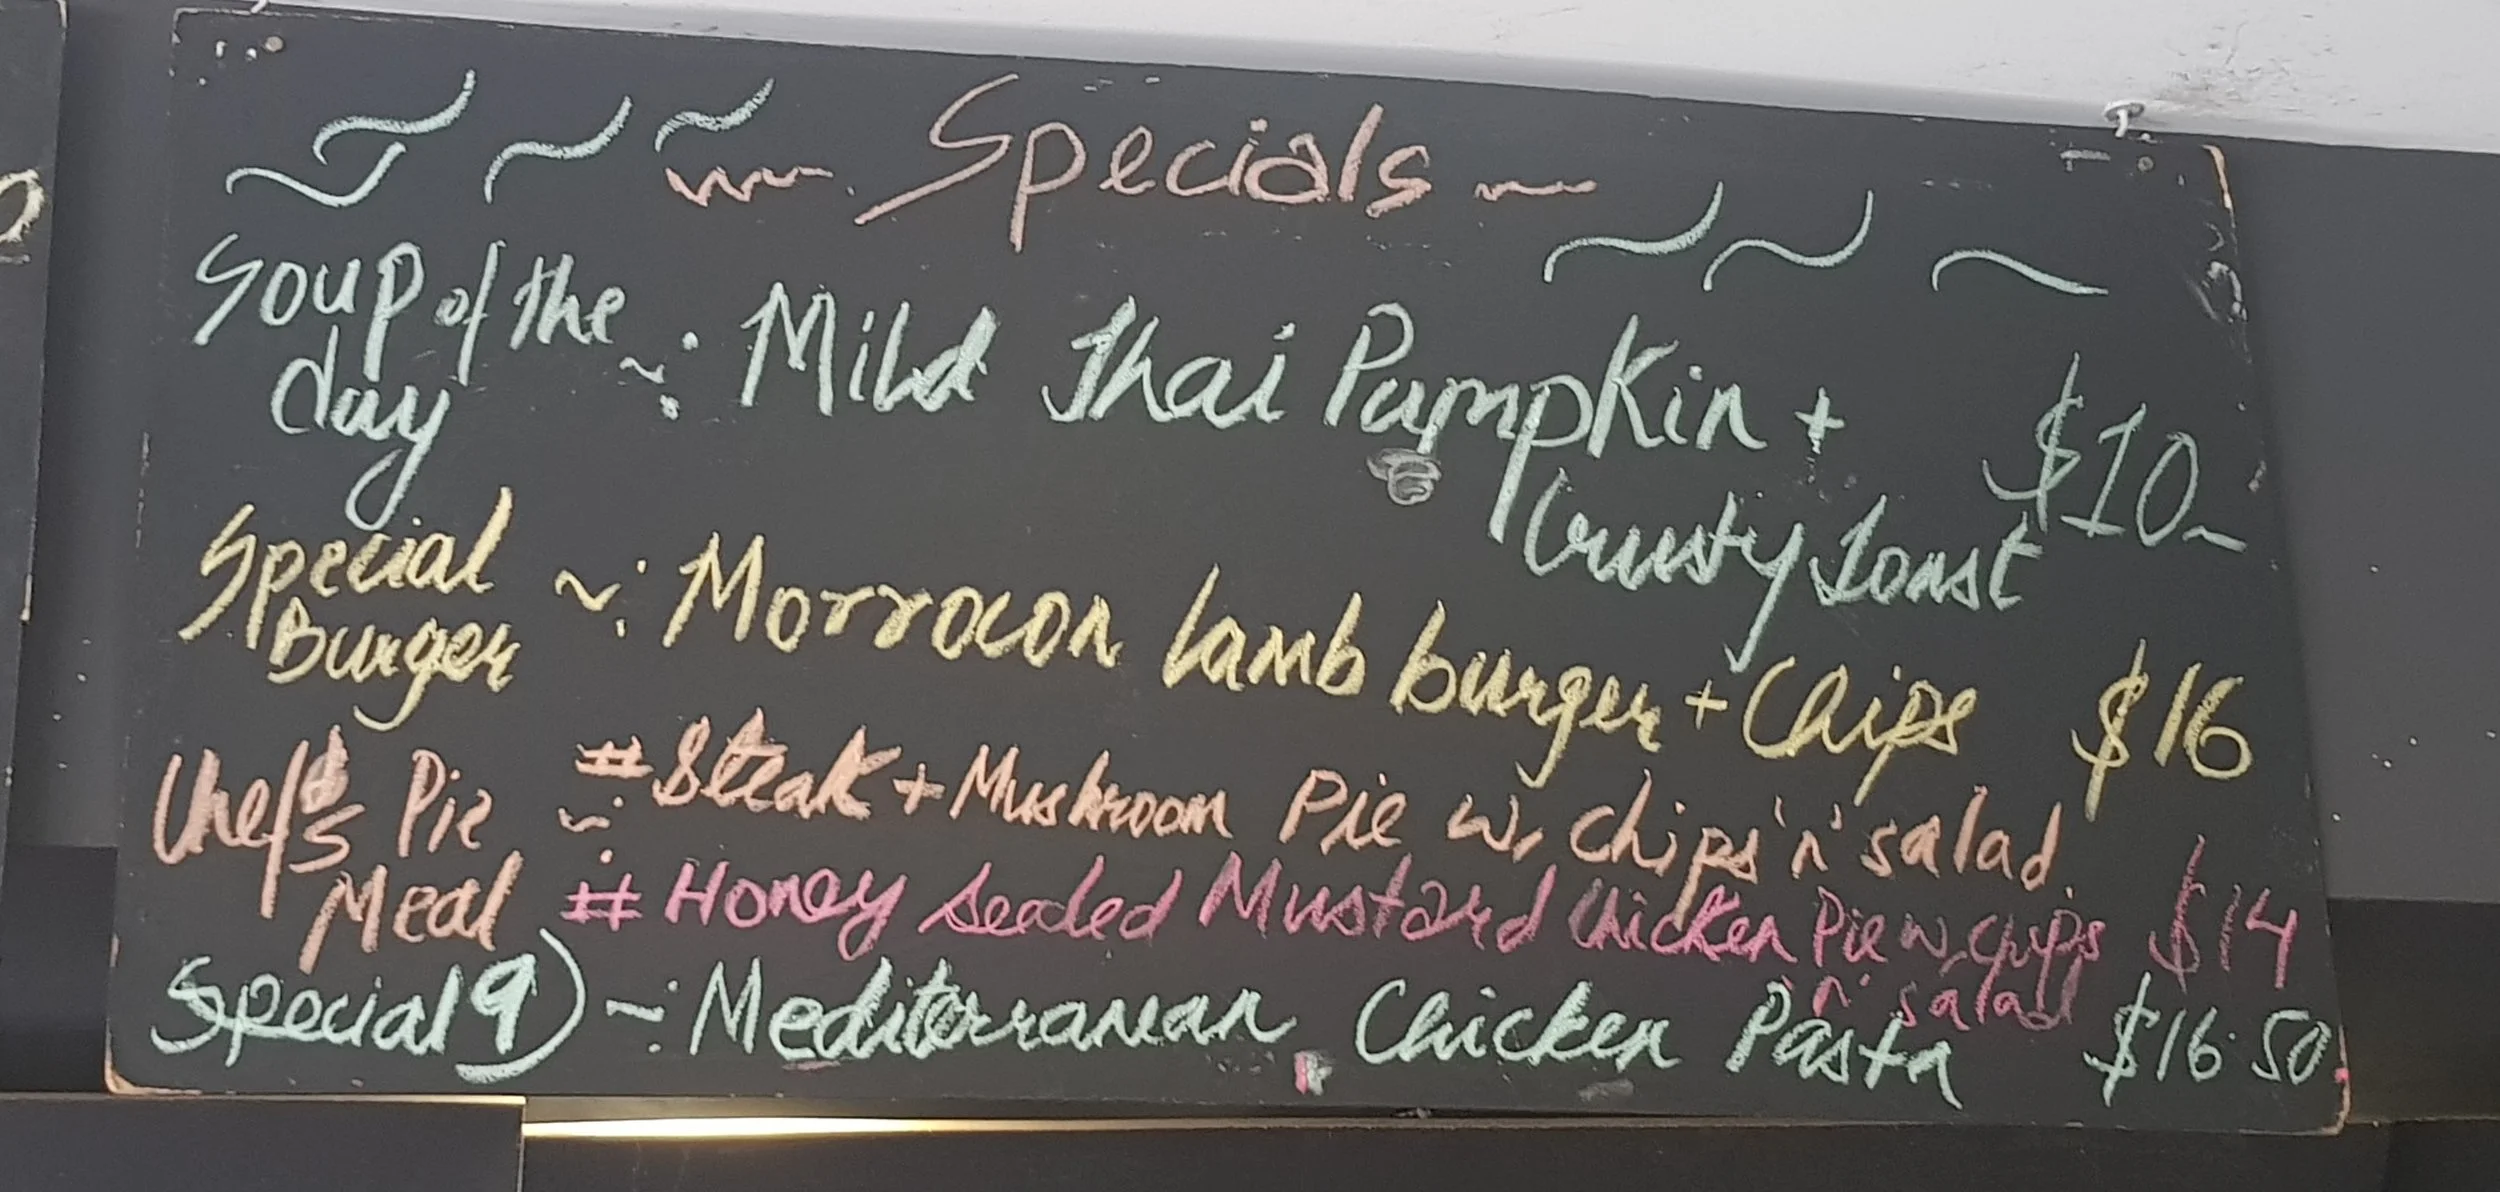 Specials
Soup of the day ~: Mild Thai Pumpkin + $10
Crusty Toast
Special Burger ~: Morrocon lamb burger + Chips $16
Chef's Pie Meal ~: # Steak + Mushroom Pie w, Chips 'n' salad.
# Honey Seeded Mustard Chicken Pie w, chips $14
'n' salad
Special 9) ~: Mediterranean Chicken Pasta $16.50